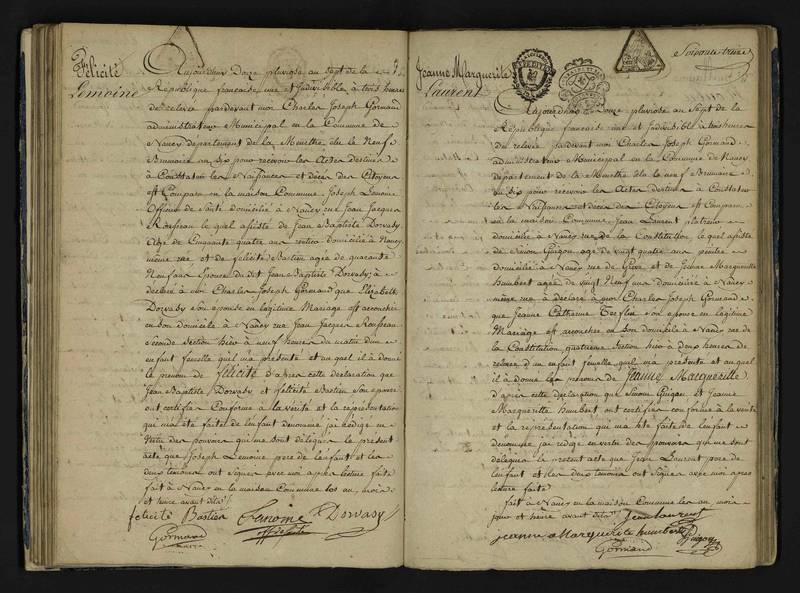 Félicité
Lemoine
Aujourd'hui Douze pluviose an Sept de la
République française, une et Indivisible à trois heures
de relevé pardevant moi Charles Joseph Gormand
administrateur Municipal en la Commune de
Nancy departement de la Meurthe élu le Neuf
Brumaire an six pour recevoir les Actes destinés
à Constater les Naissances et décès des Citoyens
est Comparu en la maison Commune Joseph Lemoine
Officier de Santé domicilié à Nancy rue Jean Jacques
Rousseau le quel assisté de Jean Baptiste Dorvasy
agé de Cinquante quatre ans rentier domicilié à Nancy
même rue et de félicité Bastien agée de quarante
Neuf ans Epouse dudit Jean Baptiste Dorvasy, à
déclaré à moi Charles Joseph Gormand que Elizabeth
Dorvasy son épouse en légitime Mariage est accouchée
en son domicile à Nancy rue Jean Jacques Rousseau
Seconde Section hier à neuf heures du matin d'un
enfant femelle quil ma présenté et au quel il à donné
le prenom de félicité d'après cette déclaration que
Jean Baptiste Dorvasy et félicité Bastien son épouse
ont certifiés Conforme à la vérité et la représentation
qui m'a été faite de l'enfant dénommé j'ai rédigé en
Vertu des pouvoirs qui me sont délégués le présent
acte que Joseph Lemoine père de l'enfant et les
deux temoins ont signés avec moi après lecture faite
fait à Nancy en la maison Commune les an, mois
et heure avant dits
félicité Bastien Lemoine Dorvasy
off. de santé
Gormand
Jeanne Marguerite
Laurent
Soixante treize
Aujourd'hui Douze pluviose an Sept de la
République française une et Indivisible à trois heures
de relevé pardevant moi Charles Joseph Gormand
administrateur Municipal en la Commune de Nancy
département de la Meurthe élu le neuf Brumaire
an Six pour recevoir les Actes destinés à Constater
les Naissances et décès des Citoyens est Comparu
en la maison Commune Jean Laurent
domicilié à Nancy rue de la Constitution le quel assisté
de Simon Guigon agé de vingt quatre ans peintre
domicilié à Nancy rue de Grève et de Jeanne Marguerite
humbert agée de vingt Neuf ans domiciliée à Nancy
même rue à déclaré à moi Charles Joseph Gormand
que Jeanne Catherine son épouse en légitime
Mariage est accouchée en son domicile à Nancy rue de
la Constitution, quatrieme Section hier à deux heures de
relevée d'un enfant femelle quil m'a présenté et auquel
il à donné les prénoms de Jeanne Marguerite
d'après cette déclaration que Simon Guigon et Jeanne
Marguerite humbert ont certifiés conforme à la vérité
et la représentation qui m'a été faite de l'enfant
dénommé j'ai rédigé en vertu des pouvoirs qui me sont
délégués le présent acte que Jean Laurent père de
l'enfant et les deux temoins ont signés avec moi après
lecture faite
fait à Nancy en la maison Commune les an mois
jour et heure avant dits Jean laurent
jeanne Marguerite humbert Guigon
Gormand